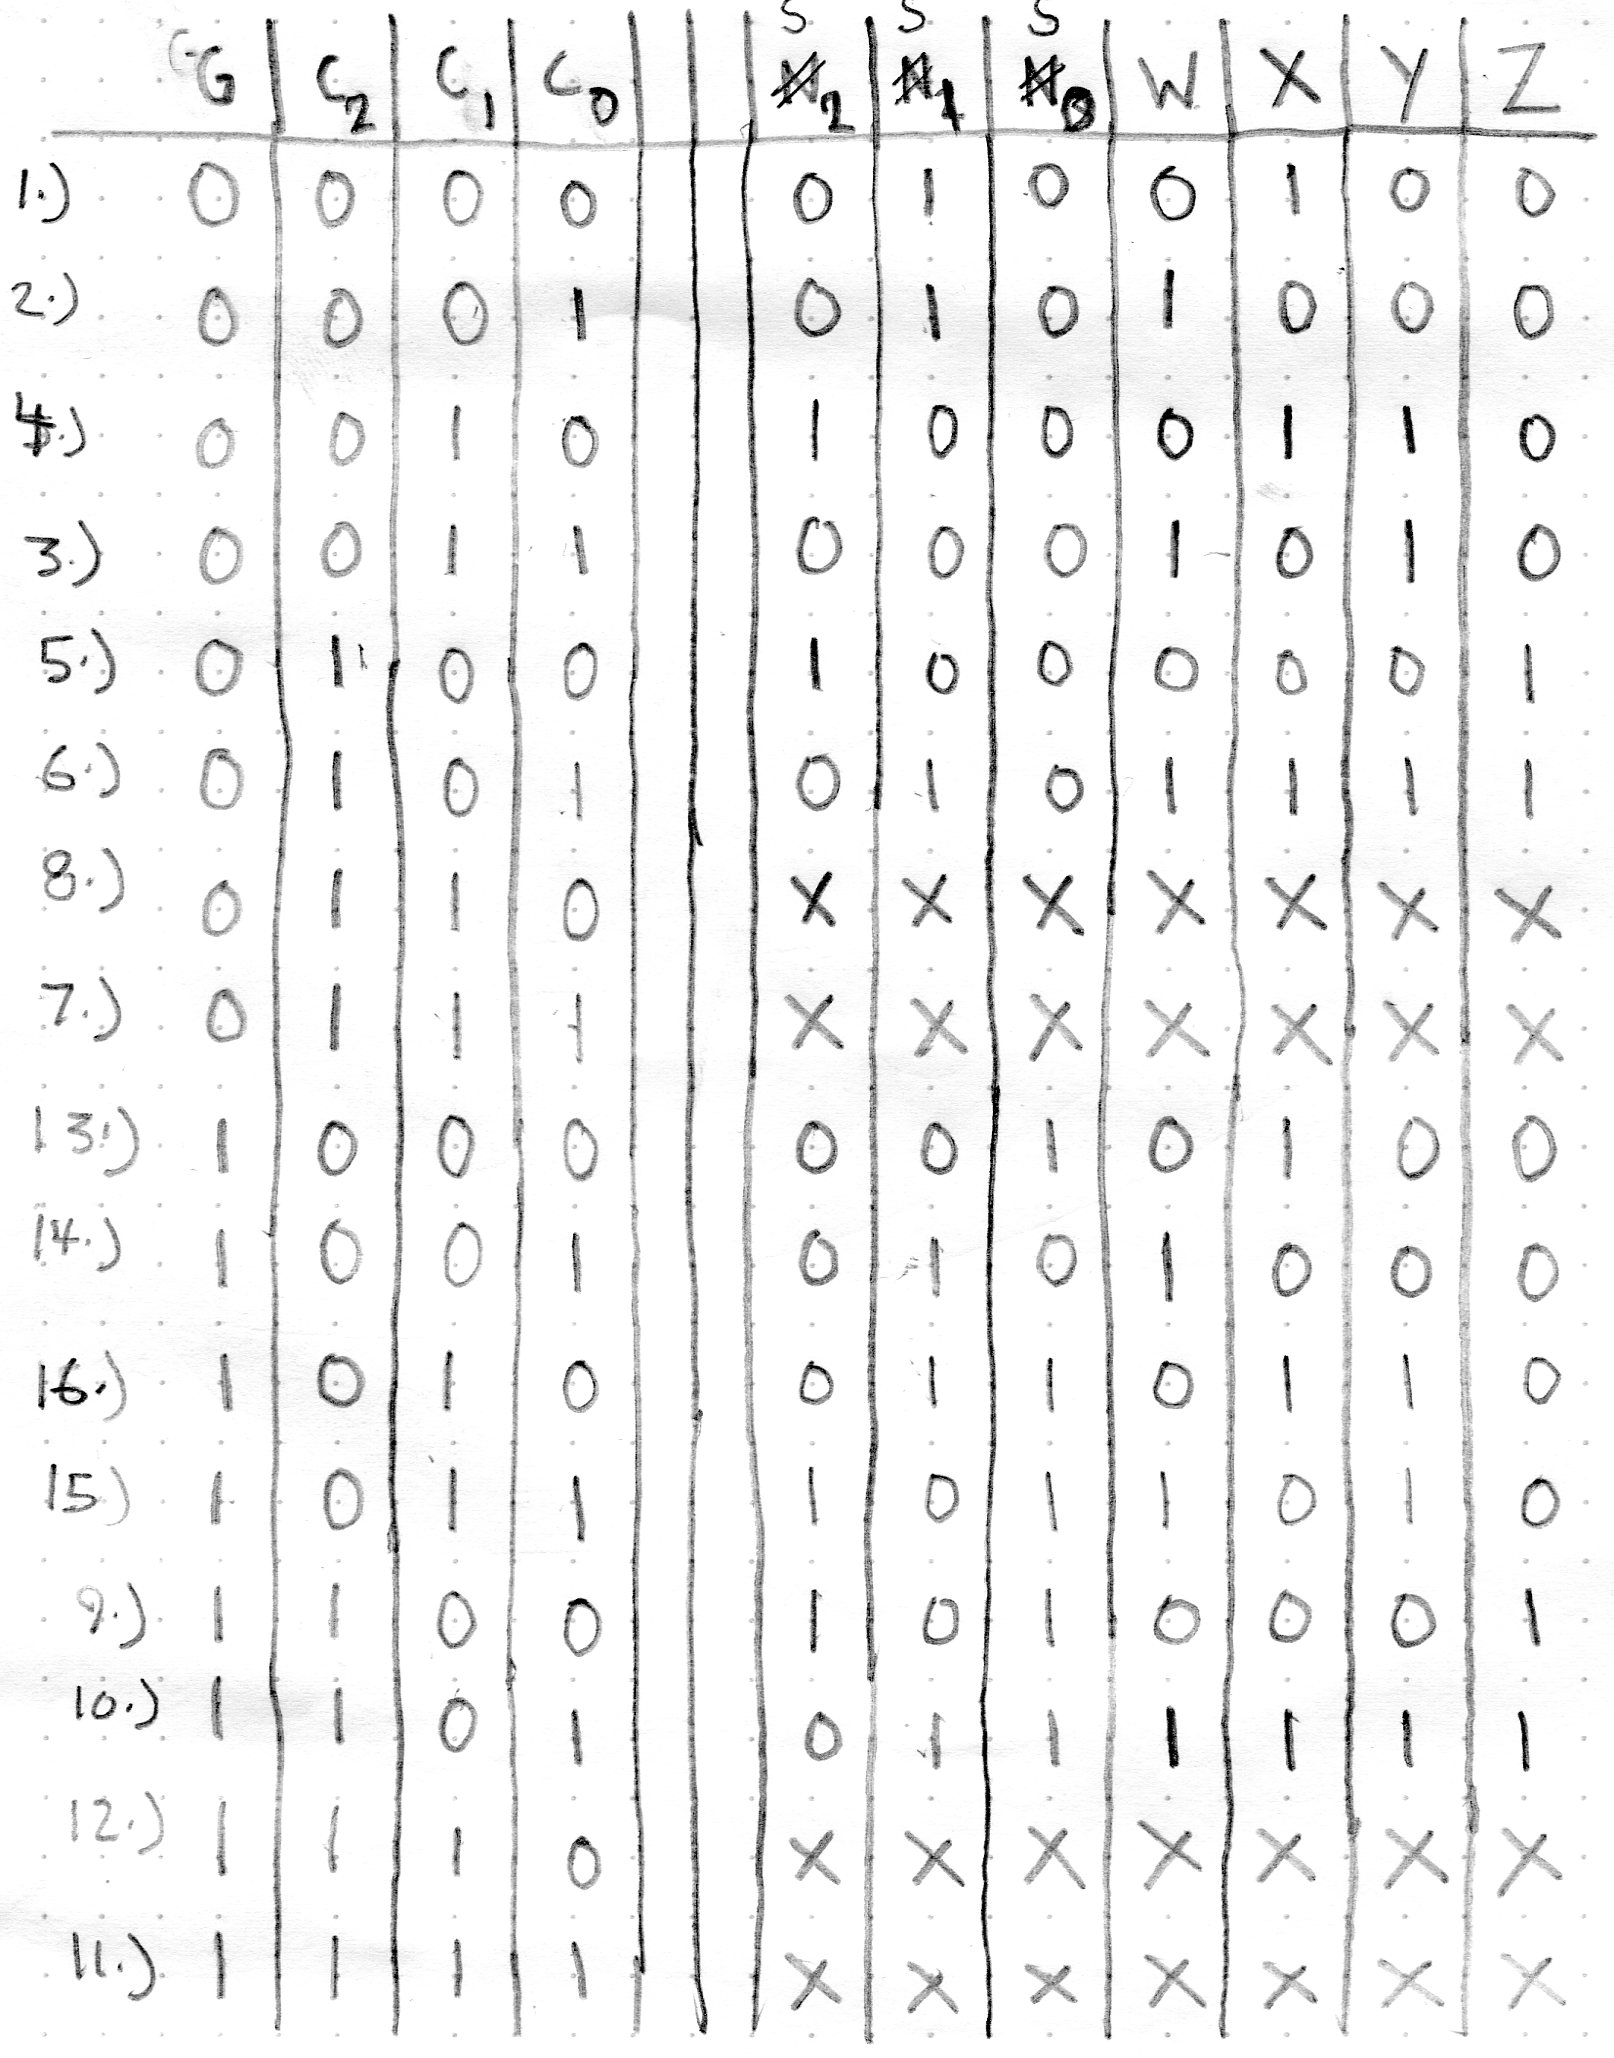 S S S
G C2 C1 C0 N2 N1 N0 W X Y Z
1.) 0 0 0 0 0 1 0 0 1 0 0
2.) 0 0 0 1 0 1 0 1 0 0 0
4.) 0 0 1 0 1 0 0 0 1 1 0
3.) 0 0 1 1 0 0 0 1 0 1 0
5.) 0 1 0 0 1 0 0 0 0 0 1
6.) 0 1 0 1 0 1 0 1 1 1 1
8.) 0 1 1 0 X X X X X X X
7.) 0 1 1 1 X X X X X X X
13.) 1 0 0 0 0 0 1 0 1 0 0
14.) 1 0 0 1 0 1 0 1 0 0 0
16.) 1 0 1 0 0 1 1 0 1 1 0
15) 1 0 1 1 1 0 1 1 0 1 0
9.) 1 1 0 0 1 0 1 0 0 0 1
10.) 1 1 0 1 0 1 1 1 1 1 1
12.) 1 1 1 0 X X X X X X X
11.) 1 1 1 1 X X X X X X X